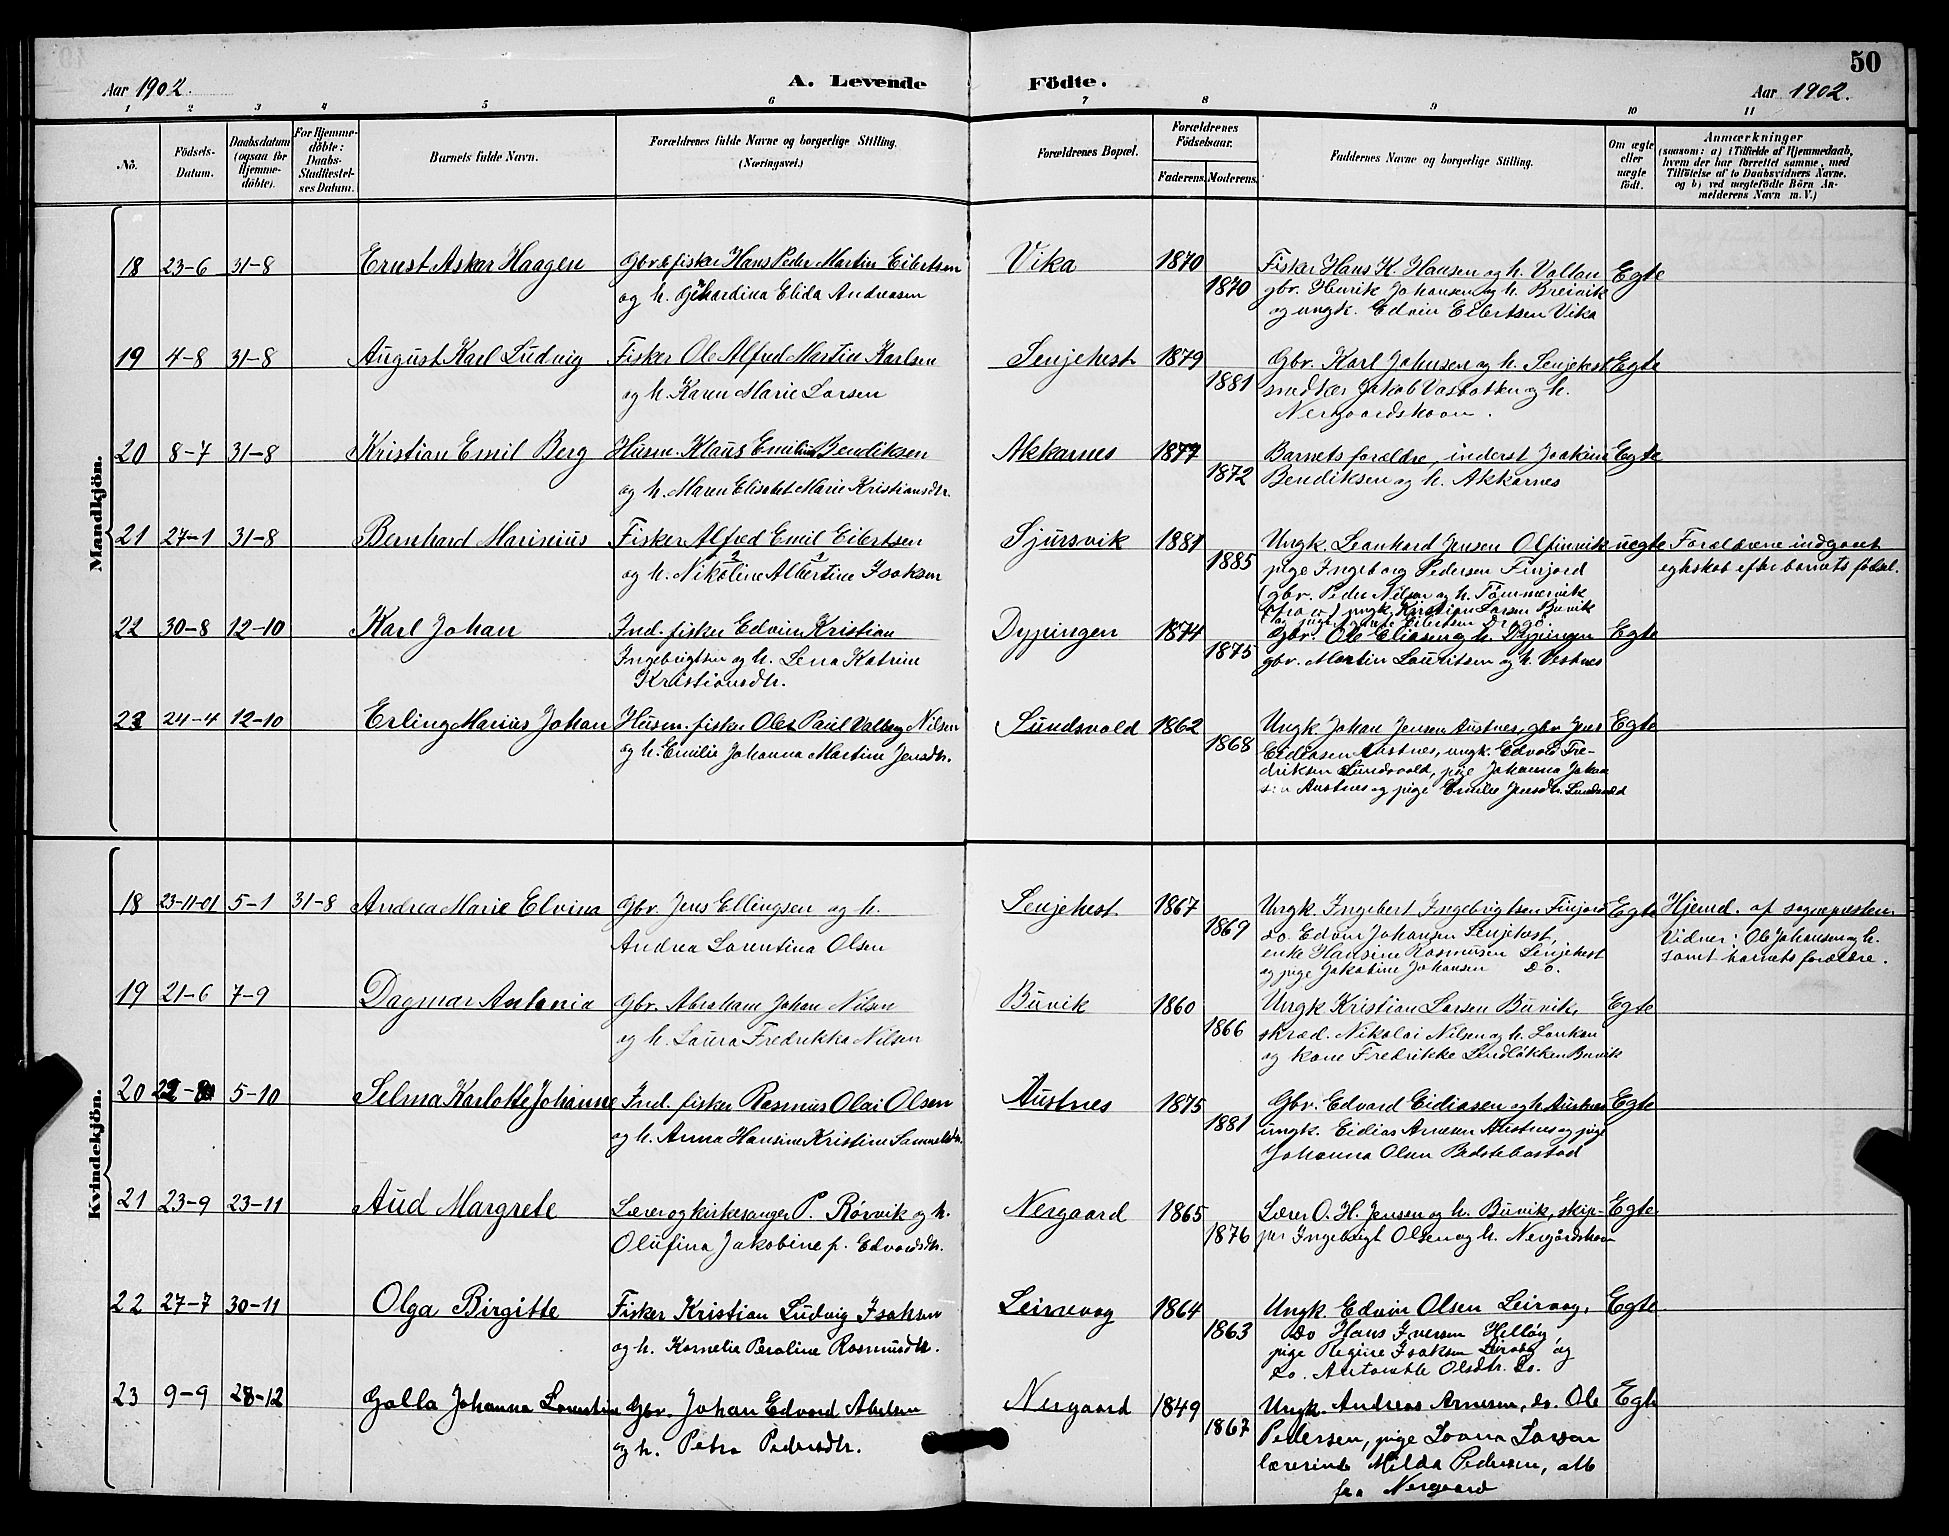 50
Aar 1902. A. Levende Födte. Aar 1902.
1 2 3 4 5 6 7 8 9 10 11
No. Födsels-Datum. Daabsdatum (ogsaa for Hjemmedöbte). For Hjemmedöbte: Daabs-Stadfæstelses Datum. Barnets fulde Navn. Forældrenes fulde Navne og borgerlige Stilling. (Næringsvei.) Forældrenes Bopæl. Forældrenes Födselsaar. Faderens. Moderens. Faddernes Navne og borgerlige Stilling. Om ægte eller uægte födt. Anmærkninger (saasom: a) i Tilfælde af Hjemmedaab, hvem der har forrettet samme, med Tilföielse af to Daabsvidners Navne, og b) ved uægtefödte Börn Anmelderens Navn m. V.)
Mandkjön.
18 23-6 31-8 Ernst Askar Haagen Gbr. & fisker Hans Peder Martin Eibertsen Vika 1870 Fisker Hans K. Hansen og h. Vallan Egte
og h. Gerhardina Elida Andreasen 1870 gbr. Henrik Johansen og h. Breivik
og ungk. Edvin Eibertsen Vika
19 4-8 31-8 August Karl Ludvig Fisker Ole Alfred Martin Karlsen Senjehest 1879 Gbr. Karl Johnsen og h. Senjehest Egte
og h. Karen Marie Larsen 1881 snedker Jakob Vasbotten og h.
Nergaardshavn.
20 8-7 31-8 Kristian Emil Berg Husm. Klaus Emilius Bendiksen Akkarnes 1877 Barnets forældre, inderst Joakim Egte
og h. Maren Elisabet Marie Kristiansdtr. 1872 Bendiksen og h. Akkarnes
21 27-1 31-8 Bernhard Marinius Fisker Alfred Emil Eilertsen Sjursvik 1881 Ungk. Leonhard Jensen Olfinvik uegte Forældrene indgaaet
og h. Nikoline Albertine Isaksen 1885 pige Ingeborg Pedersen Finjord egteskab efter barnets fødsel.
gbr. Peder Nilsen og h. Tømmervik
ungk. Kristian Larsen Buvik
22 30-8 12-10 Karl Johan Ind. fisker Edvin Kristian Dypingen 1874 Gbr. Ole Eliasen og h. Dypingen Egte
Ingebrigtsen og h. Lena Katrine 1875 gbr. Martin Lauritsen og h. Vestnes
Kristiansdtr.
23 24-4 12-10 Erling Marius Johan Husm. fisker Oles Paul Valberg Nilsen Sundsvold 1862 Ungk. Johan Jensen Austnes, gbr. Jens Egte
og h. Emilie Johanna Martine Jensdtr. 1868 Eidiasen Austnes, ungk. Edvald Fre-
driksen Sundsvold, pige Johanna Johan
sen Austnes og pige Emilie Jensdtr. Sundsvold
Kvindekjön.
18 23-11-01 5-1 31-8 Andrea Marie Elvina Gbr. Jens Ellingsen og h. Senjehest 1867 Ungk. Ingebert Ingebrigtsen Finjord Egte Hjemd. af sognepresten.
Andrea Lorentina Olsen 1869 do. Edvin Johansen Senjehest, Vidner: Ole Johansen og h.
enke Hansine Rasmussen Senjehest samt barnets forældre.
og pige Jakobine Johansen do.
19 21-6 7-9 Dagmar Antonia Gbr. Abraham Johan Nilsen Buvik 1860 Ungk Kristian Larsen Buvik, Egte
og h. Laura Fredrikka Nilsen 1866 skræd. Nikolai Nilsen og h. Lankan
og kone Fredrikke Lindløkken Buvik
20 5-10 Selma Karlotte Johanne Ind. fisker Rasmus Olai Olsen Austnes 1875 Gbr. Edvard Eidiasen og h. Austnes Egte
og h. Anna Hansine Kristine Samuelsdtr. 1881 ungk. Eidias Arnesen Austnes og pige
Johanna Olsen Bedstebostad
21 23-9 23-11 Aud Margrete Lærer og kirkesanger P. Rørvik og h. Nergaard 1865 Lærer O. H. Jensen og h. Buvik, skip- Egte
Olufina Jakobine f. Edvardsdtr. 1876 per Ingebrigt Olsen og h. Nergårdshavn
22 27-7 30-11 Olga Birgitte Fisker Kristian Ludvig Isaksen Leirevog 1864 Ungk. Edvin Olsen Leirvog, Egte
og h. Kornelia Peroline Rasmusdtr. 1863 do Hans Iversen Helløy,
pige Regine Isaksen Leirvog og
do. Antonette Olsdtr. do.
23 9-9 28-12 Galla Johanna Lorentine Gbr. Johan Edvard Abelsen Nergaard 1849 Ungk. Andreas Arnesen, do. Ole Egte
og h. Petra Pedersdtr. 1867 Pedersen, pige Lovna Larsen
lærerinde Milda Pedersen, alle
fra Nergaard